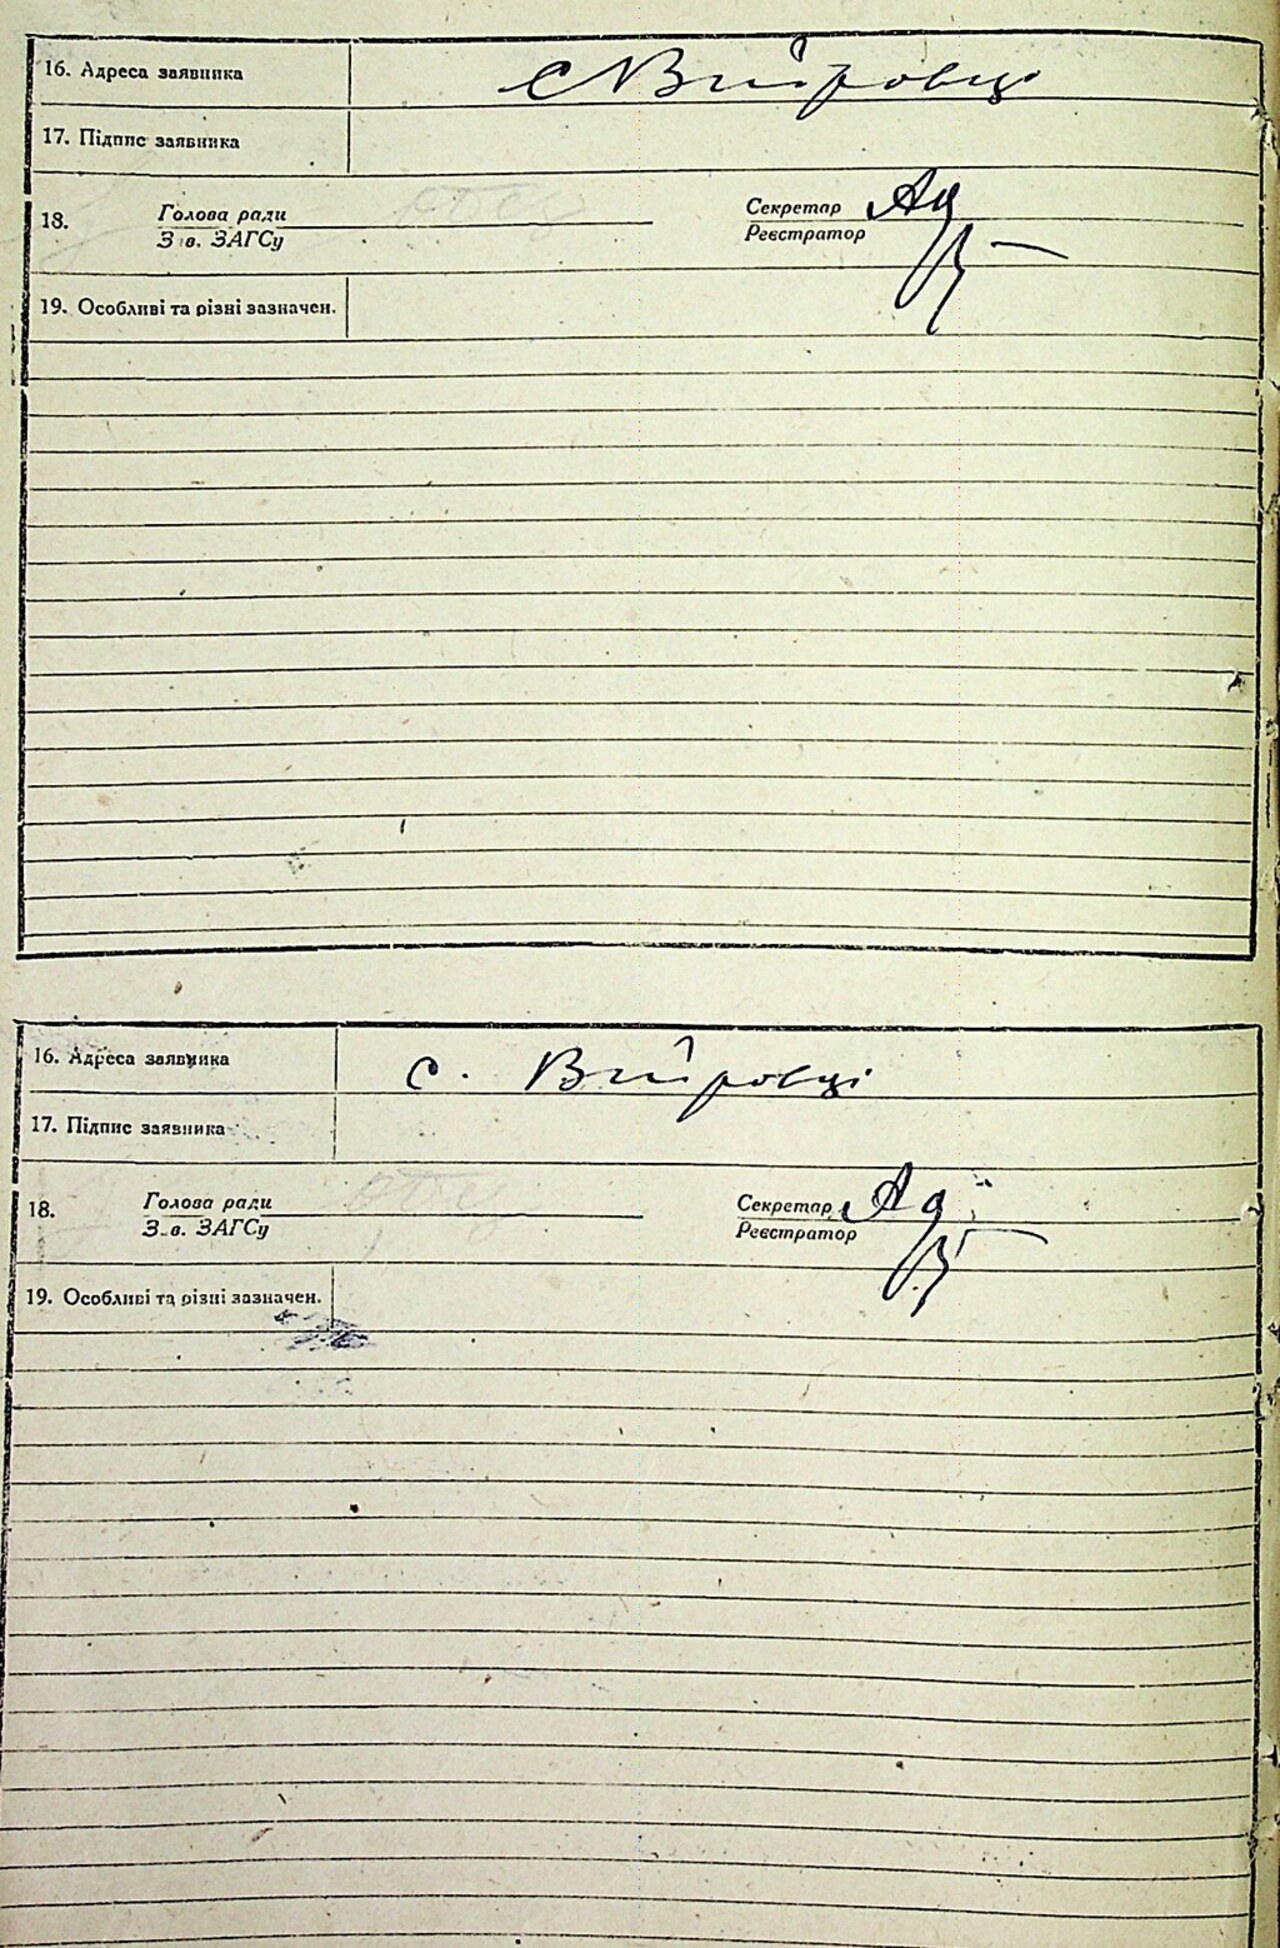 16. Адреса заявника с Війтовці
17. Підпис заявника
18. Голова ради Секретар
З в. ЗАГСу Реєстратор
19. Особливі та різні зазначен.
16. Адреса заявника с.
17. Підпис заявника
18. Голова ради Секретар
З-в. ЗАГСу Реєстратор
19. Особливі та різні зазначен.